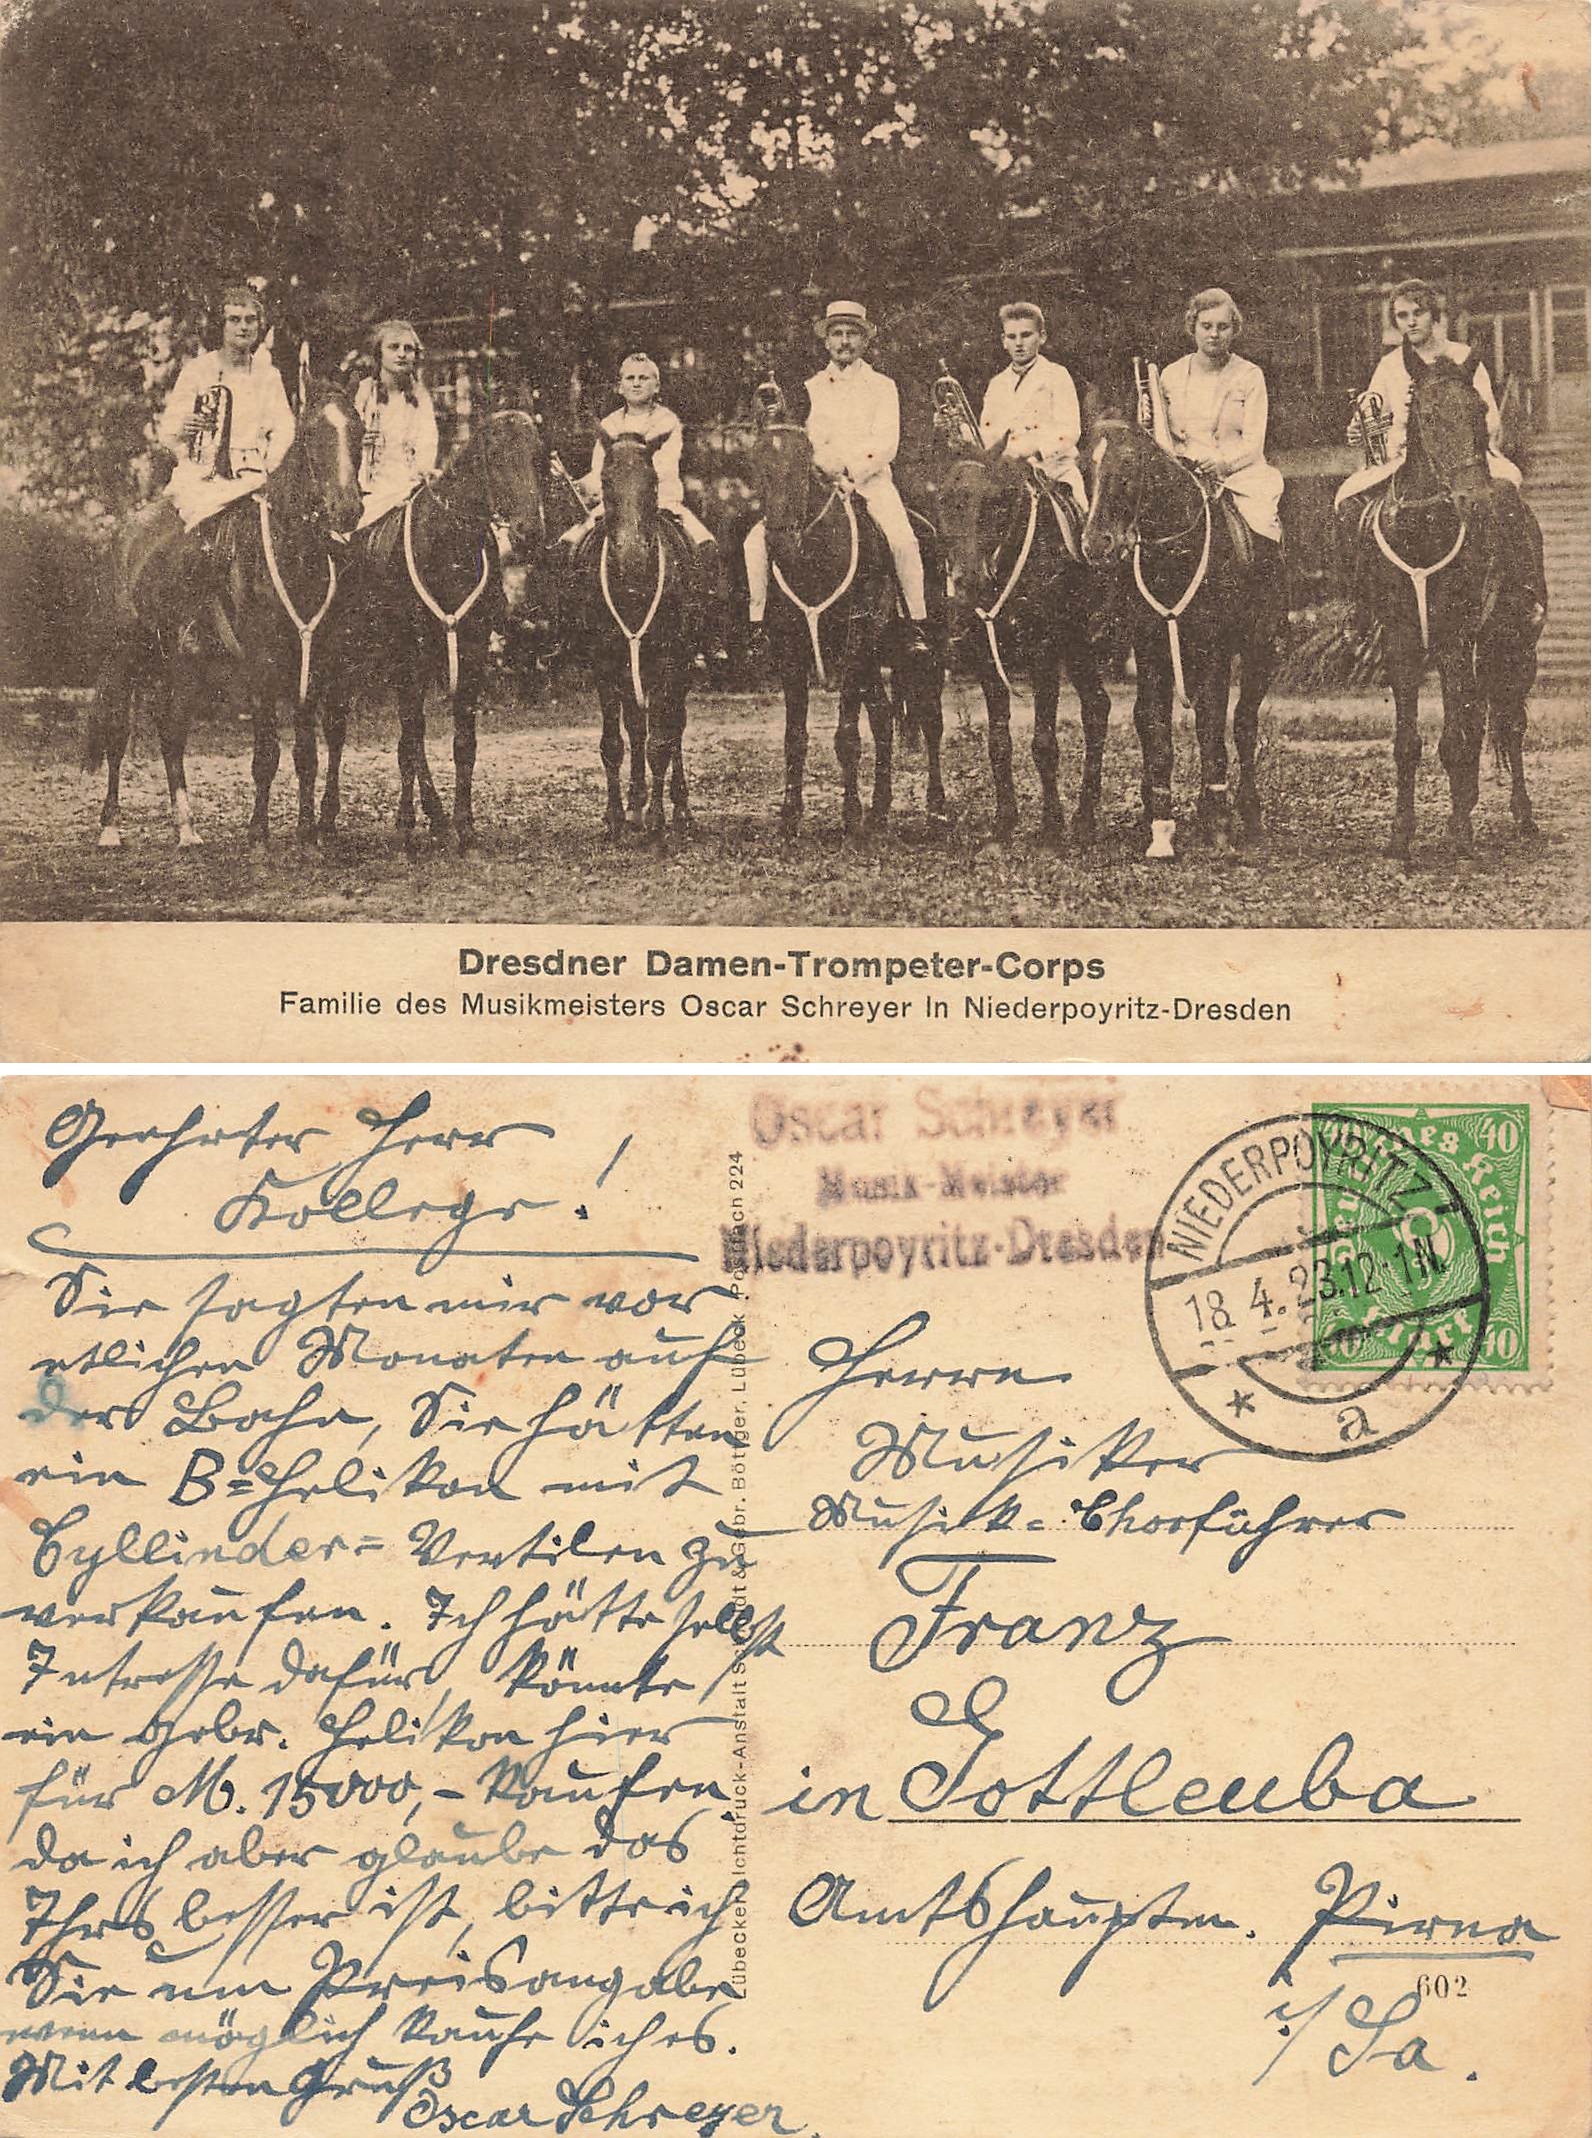 Dresdner Damen-Trompeter-Corps
Familie des Musikmeisters Oscar Schreyer In Niederpoyritz-Dresden
Geehrter Herr
Kollege!
Sie sagten mir vor
etlichen Monaten auf
der Bahn, Sie hätten
ein B=Helikon mit
Cyllinder= Ventilen zu
verkaufen. Ich hätte selbst
Intresse dafür, könnte
ein gebr. Helikon hier
für M. 15000,- kaufen
da ich aber glaube das
Ihres besser ist, bitte ich
Sie um Preisangabe
wenn möglich kaufe ich es.
Mit besten Gruß
Oscar Schreyer.
Lübecker Lichtdruck-Anstalt Schmidt & Gebr. Böttger, Lübeck Postfach 224
Oscar Schreyer
Musik-Meister
Niederpoyritz-Dresden
NIEDERPOYRITZ
18.4.23.12-1N.
* a *
Deutsches Reich
40 40
40 40
Herrn
Musiker
Musik-Chorführer
Franz
in Gottleuba
Amtshauptm. Pirna
602
i/Sa.